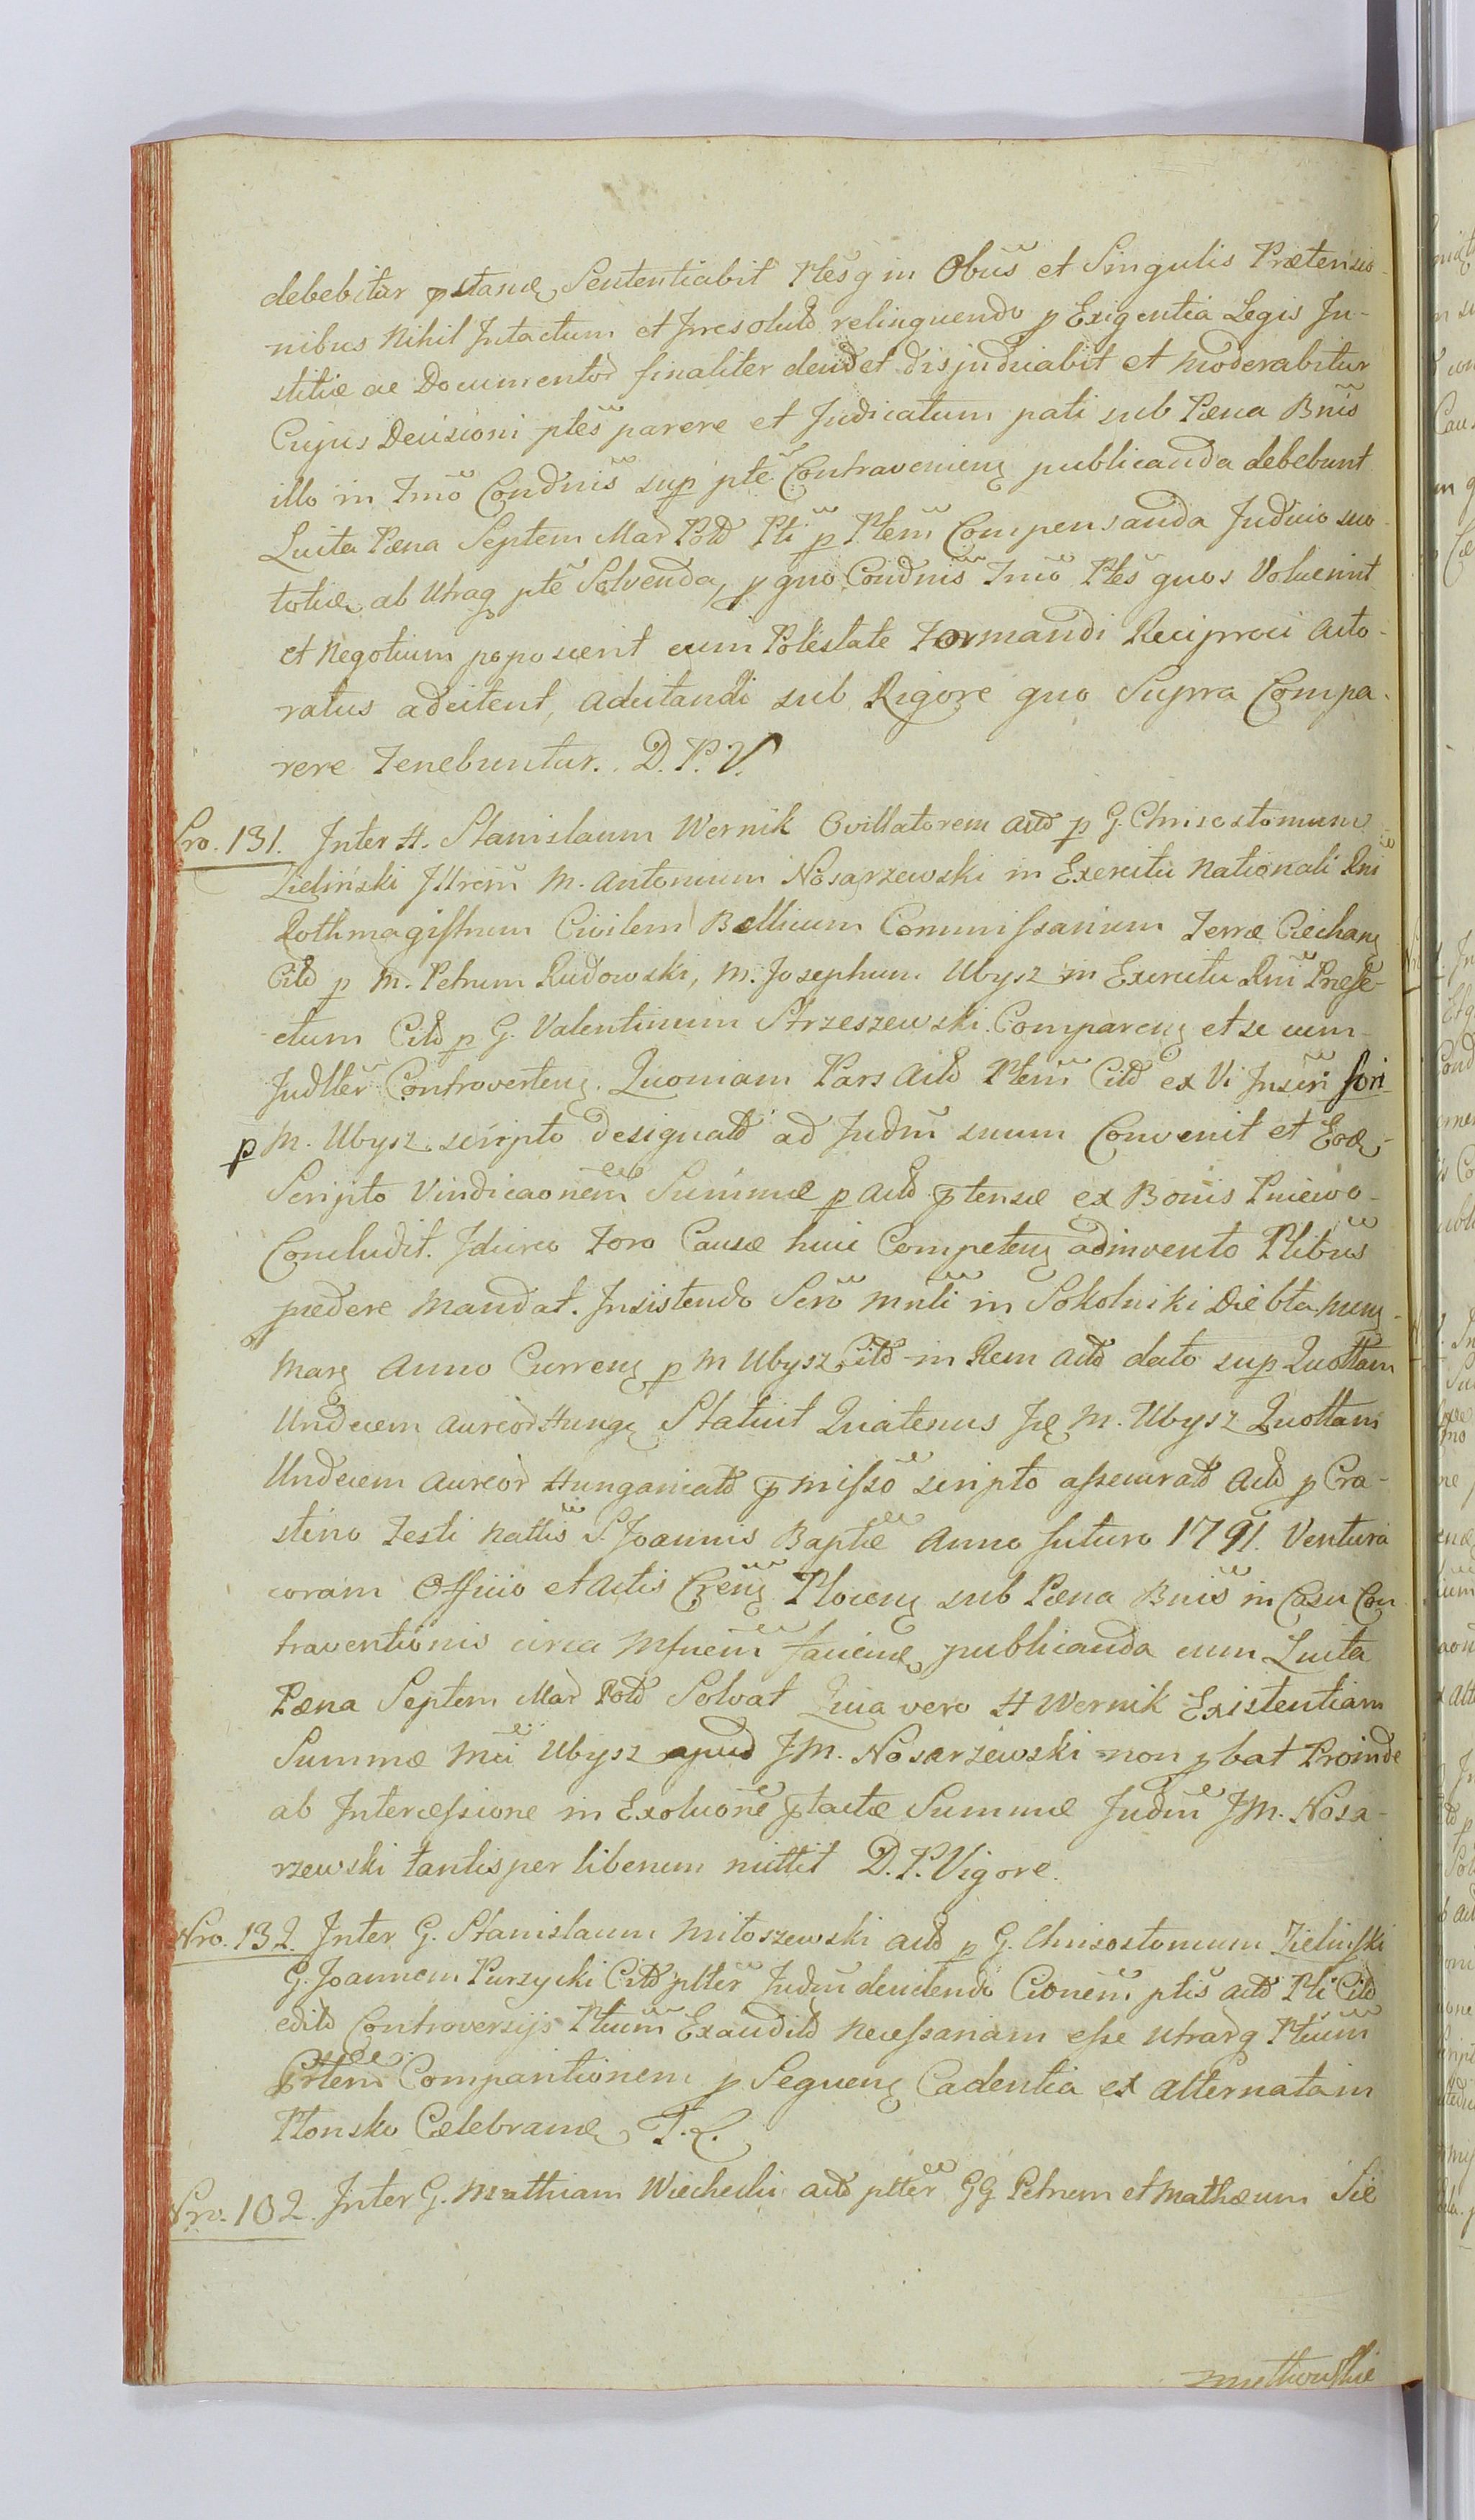 debebitur pstanę Sententiabit Ptesq in Obus et Singulis Prætensio-
nibus Nihil Intactum et Irresolutd relinquendo p Exigentia Legis Ju-
stitiæ ac Documentor finaliter deudet disjudicabit et moderabitur
Cujus Decisioni ptes parere et Judicatum pati sub Pæna Bnis
illo in Tmo Condnis sup pte Contravenieng publicanda debebunt
Luita Pæna Septem Mar Pold Pti p Ptem Compensanda Judicio suo-
toties ab Utraq pte Solvenda, p quo Condnis Tmo Ptes quos Voluerint
et Negotium poposcerit cum Potestate Formandi Reciproci Acto-
ratus adcitent, Adcitandi sub Rigore quo Supra Compa-
rere Tenebuntur. D. P. V.
Nro. 131. Inter H. Stanislaum Wernik Ovillatorem Actd p G. Chrisostomum
Zieliński Illrem M. Antonium Nosarzewski in Exercitu Nationali Rni
Rothmagistrum Civilem Bellicum Commissarium Terræ Ciechang
Citd p M. Petrum Rudowski, M. Josephum Ubysz in Exercitu Rni Præfe-
ctum Citd p G. Valentinum Strzeszewski. Compareng et se cum
Judller Controverteng. Quoniam Pars Actd Ptem Citd ex Vi Inseri fori
p M. Ubysz scripto designatd ad Judm suum Convenit et Eoq
Scripto Vindicaonem Summæ p Actd ptensæ ex Bonis Pniewo
Concludit. Idcirco Foro Causæ huic Competeng adinvento Ptibus
pcedere Mandat. Insistendo Sero mnli in Sokolniki Die bta meng
Marg Anno Curreng p M Ubysz Citd in Rem Actd dato sup Quottam
Undecem aureor Hungę Statuit Quatenus Ję M. Ubysz Quottam
Undecem aureor Hungaricatd pmisso scripto assecuratd Actd p Cra-
stino Festi Natlis S. Joannis Baptæ Anno futuro 1791. Ventura
coram Officio et Actis Creng Ploceng sub Pæna Bnis in Casu Con
traventionis circa Mfnem faciend publicanda cum Luita
Pæna Septem Mar Pold Solvat Quia vero H Wernik Existentiam
Summæ Mci Ubysz apud JM. Nosarzewski non pbat Proinde
ab Intercessione in Exoluone ptactæ Summæ Judm JM. Nosa-
rzewski tantisper liberum mittit D. P. Vigore.
Nro. 132. Inter G. Stanislaum Mitoszewski actd p G. Chrisostomum Zielinski
G. Joannem Purzycki Citd ptter Judm decidendo Cionem ptis actd Pti Citd
editd Controversijs Ptium Exauditd Necessariam esse utrarq Ptium
Prlem Comparitionem p Sequeng Cadentia ex alternata in
Plonsko Celebrand T. L.
Nro. 102. Inter G. Mathiam Wiechecki actd ptter GG Petrum et Mathæum Sie